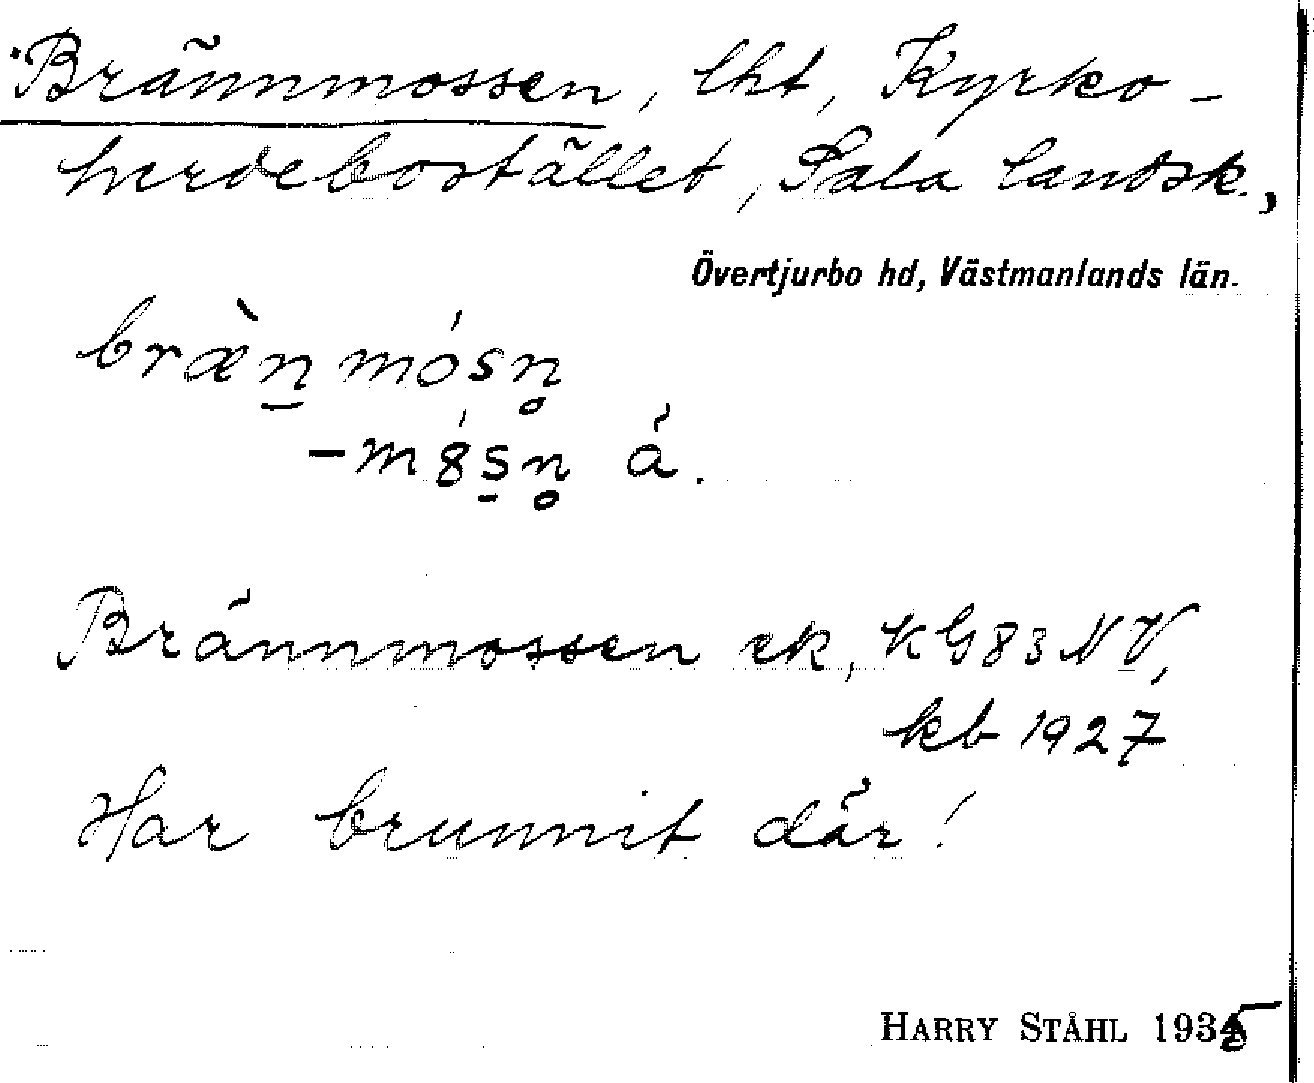 Brännmossen, lht, Kyrko-
herdebostället, Sala landsk.,
Övertjurbo hd, Västmanlands län.
bræ̀n̠mósn̥
-mós̠n̥ á.
Brännmossen ek, KG83NV,
kb 1927
Har brunnit där!
HARRY STÅHL 1935